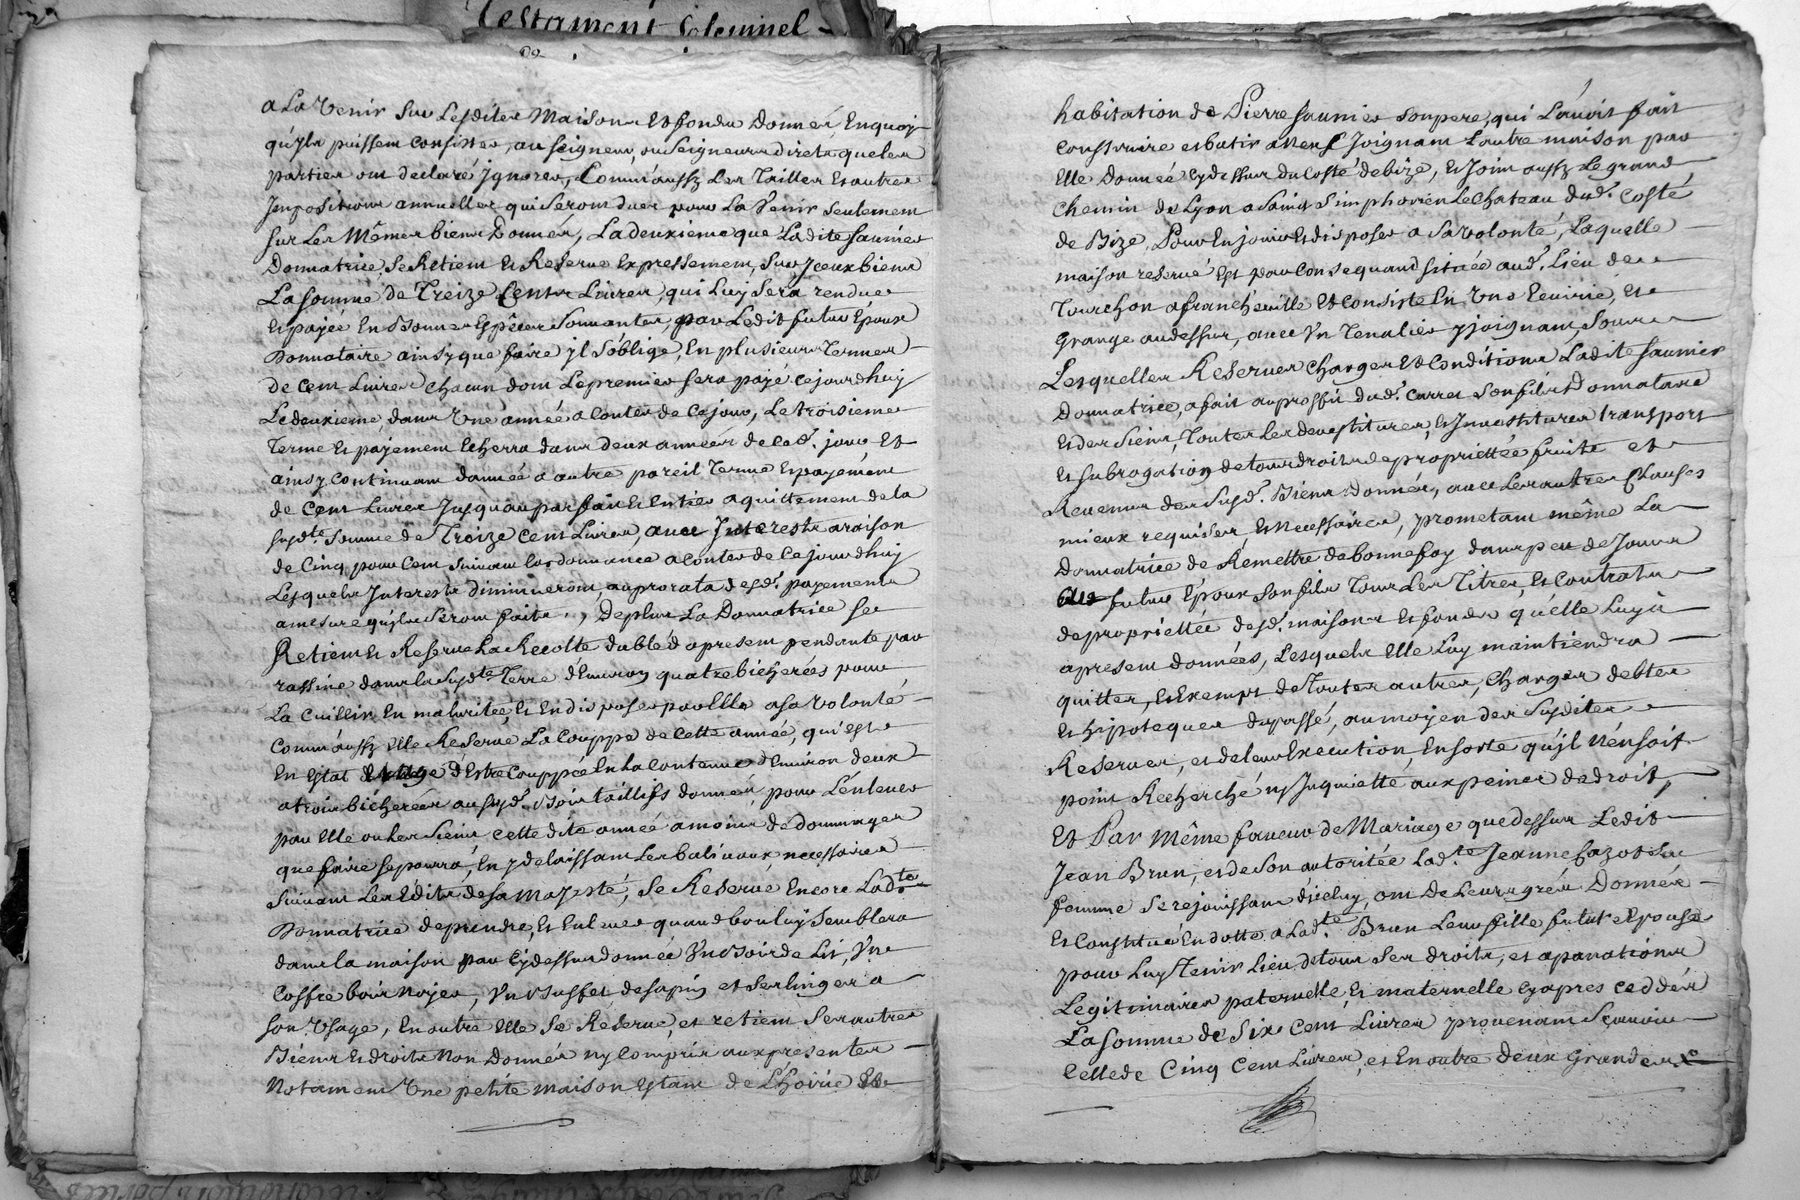 Testament solemnel
a La venir sur Lesdites Maisons Et fonds Donnés Enquoy
qu'yls puissent consister, au seigneur, ou seigneurs directs quels les
parties ont declaré Jgnorer, Comm'aussy Les Tailles Et autres
Jmpositions annuelles qui seront dues pour La venir seulement
sur Les Mêmes biens Donnés, La deuxieme que Ladite saunier
Donnatrice se Retient Et Reserve Expressement, sur Jceux biens
La somme de Treize Cents Livres, qui Luy sera rendue
Et payée En Bonnes Espêces sonnantes, par Ledit futur Epoux
Donnataire ainsy que faire jl s'oblige, En plusieurs Termes
de cent Livres chacun dont Le premier sera payé cejourdhuy
Le deuxieme, dans Une année a conter de ce jour, Le troisieme
Terme Et payement Echerra dans deux années de ced.t jour Et
ainsy continuant d'année a autre pareil Terme Et payement
de cent Livres Jusqu'au parfait Et Entier aquittement de la
susd.te somme de Treize cent Livres, avec Jnterests a raison
de Cinq pour Cent suivant Lordonnance a conter de Cejourdhuy
Lesquels Jnterests diminueront, au prorata desd.s payements
a mesure qu'yls seront faits ., De plus La Donnatrice se
Retient Et Reserve La Recolte du bled a present pendante par
rassine dans la susd.te Terre d'Environ quatre bicherées pour
La Cuillir En maturitée, Et En disposer par Elle a sa volonté
Comm'aussy Elle Reserve La Couppe de cette année, qui est
En Estat d'Estre Couppée En La Contenue d'Environ deux
a trois bicherées au susd.t Bois taillifs donnés, pour L'enlever
par Elle ou Les siens cette dite année a moins de dommages
que faire se pourra, En y delaissant Les balivaux necessaires
suivant Les Edits de sa Majesté, se Reserve Encore Lad.te
Donnatrice de prendre, Et Enlever quand bon luy semblera
dans la maison par Cydessus donnée Un Bois de Lit, Un
Coffre bois Noyer, Un Buffet de sapin et ses linges a
son Usage, En outre Elle se Reserve, et retient ses autres
Biens Et droits Non Donnés ny Compris aux presentes
Notament Une petite maison Estant de L'hoirie Et
habitation de Pierre saunier son pere, qui L'avoit fait
construire et batir a neuf Joignant L'autre maison par
Elle Donnée cydessus du costé de bize, et Joint aussy Le grand
Chemin de Lyon a saint simphorien Le Chateau dud.t Costé
de Bize, Pour En jouir Et disposer a sa volonté, Laquelle
maison reservé Est par consequand située aud.t Lieu de
Tourchon a francheville Et consiste En Une Ecuirie, Et
Grange au dessus, avec Un Tenalier y joignant, sous
Lesquelles Reserves charges Et Conditions Ladite saunier
Donnatrice, a fait au proffit dud.t Carret son fils Donnataire
Et des siens, Toutes Les devestitures, Et Jnvestitures transport
Et subrogation de tous droits de propriettée fruits et
Revenus des susd.t Biens Donnés, avec Les autres Clauses
mieux requises, Et Necessaires, prometant même La
Donnatrice de Remettre de bonne foy dans peu de Jours
futur Epoux son fils Tous Les Titres, Et Contrats
de propriettée desd.s maisons Et fonds qu'elle Luy a
a present données, Lesquels Elle Luy maintiendra
quitter, Et Exempt de Toutes autres, Charges debtes
Et hipoteques du passé, au moyen des susdites
Reserves, et de leur Execution, Ensorte qu'jl N'en soit
point Recherché ny Jnquietté aux peines de droit,
Et Par Même faveur de Mariage que dessus Ledit
Jean Brun, et de son autoritée Lad.te Jeanne fazot sa
femme se rejouissans d'iceluy, ont De Leurs grés Donnée
Et Constitué En dotte a Lad.te Brun Leur fille futur Epouse
pour Luy Tenir Lieu de tous ses droits, et apanations
Legitimaires paternelle Et maternelle cyapres ceddés
La somme de six Cent Livres provenant sçavoir
Celle de Cinq Cent Livres, et En outre deux Grandeurs